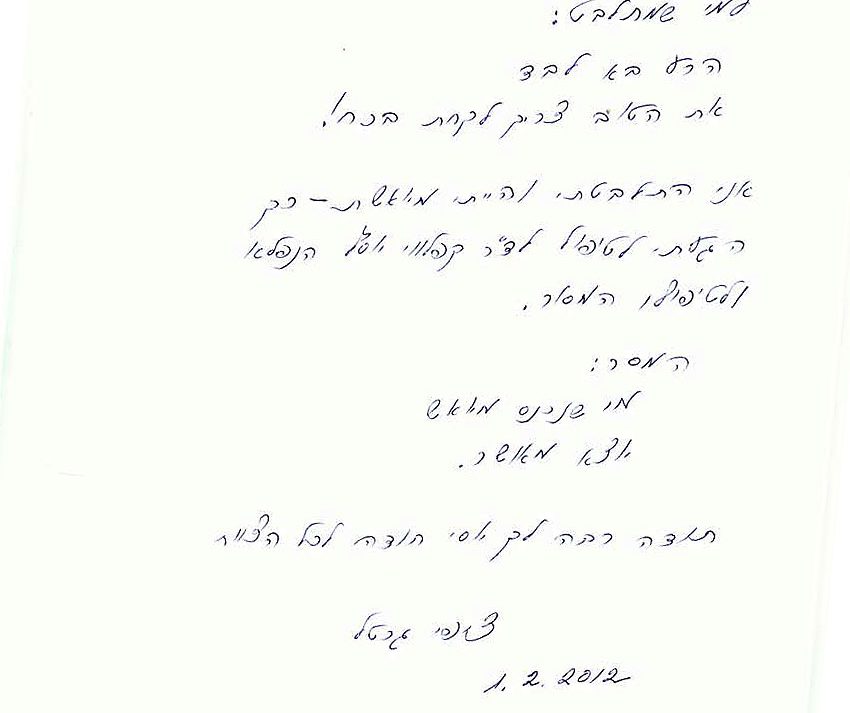 למי שמתלבט:
הרע בא לבד
את הטוב צריך לקחת בכח!
אני התלבטתי והייתי מיואשת - כך
הגעתי לטיפול לד"ר קפלווי יוסי הנפלא
ולטיפולו המסור.
המסר:
מי שנכנס מיואש
יוצא מאושר.
תודה רבה לך יוסי תודה לכל הצוות
גרטל
1.2.2012